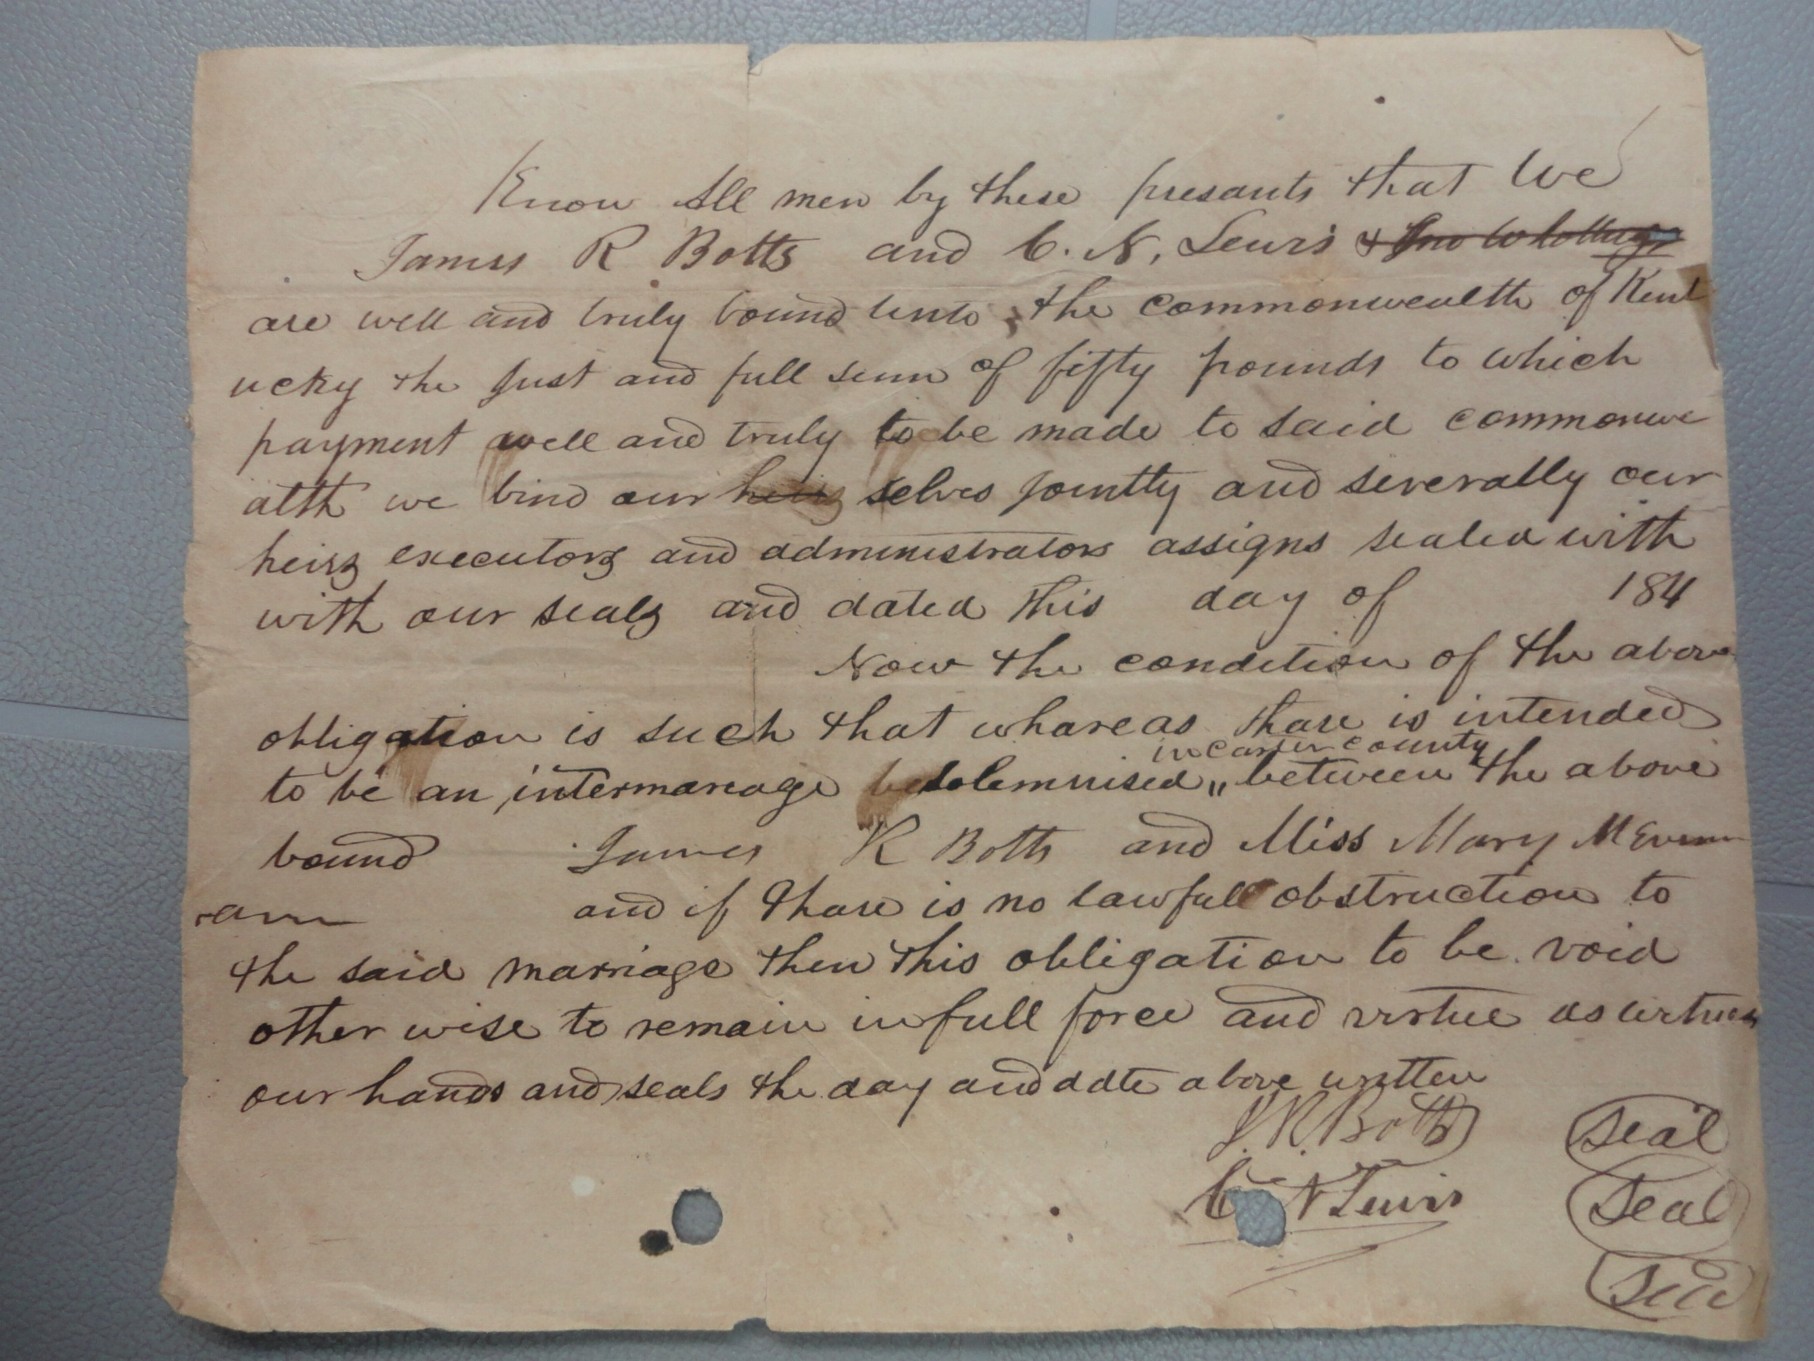 Know All men by these presants that We
James R Botts and C. N. Lewis &
are well and truly bound unto the commonwealth of Kent
ucky the Just and full sum of fifty pounds to which
payment well and truly to be made to said commonwe
alth we bind our heirs selves jointly and severally our
heirs executors and administrators assigns sealed with
with our seals and dated this day of 184
Now the condition of the above
obligation is such that whareas thare is intended
in Carter county
to be an intermareage be solemnised " between the above
bound James R Botts and Miss Mary
and if thare is no lawfull obstruction to
the said marriage then this obligation to be void
other wise to remain in full force and virtue as witness
our hands and seals the day and date above written
J. R. Botts seal
C N Lewis seal
seal